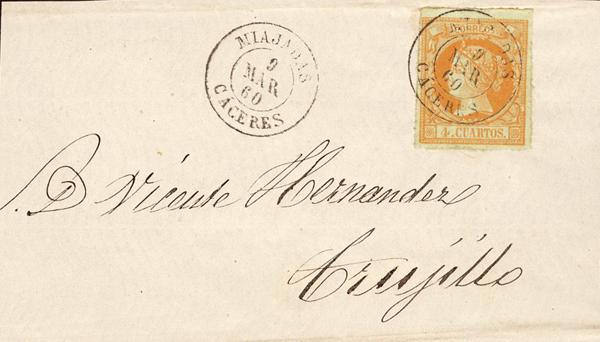 MIAJADAS
9
MAR
60
CACERES
CORREOS
MIAJADAS
9
MAR
60
CACERES
4 CUARTOS.
S. D. Vicente Hernandez
Trujillo